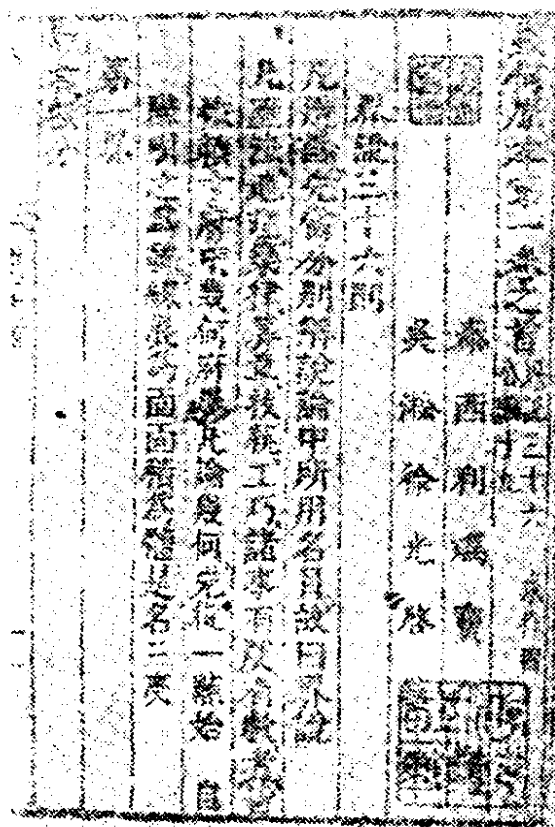 幾何原本第一卷之首 界說三十六
泰西利瑪竇
吳淞徐光啓
界說三十六則
凡造論先當分別解說論中所用名目故曰界說
凡歷法地理樂律算章技藝工巧諸事有度有數者
依賴十府中幾何府屬凡論幾何先從一點始自
點引之為線線展為面面積為體是名三度
第一界
點者無分